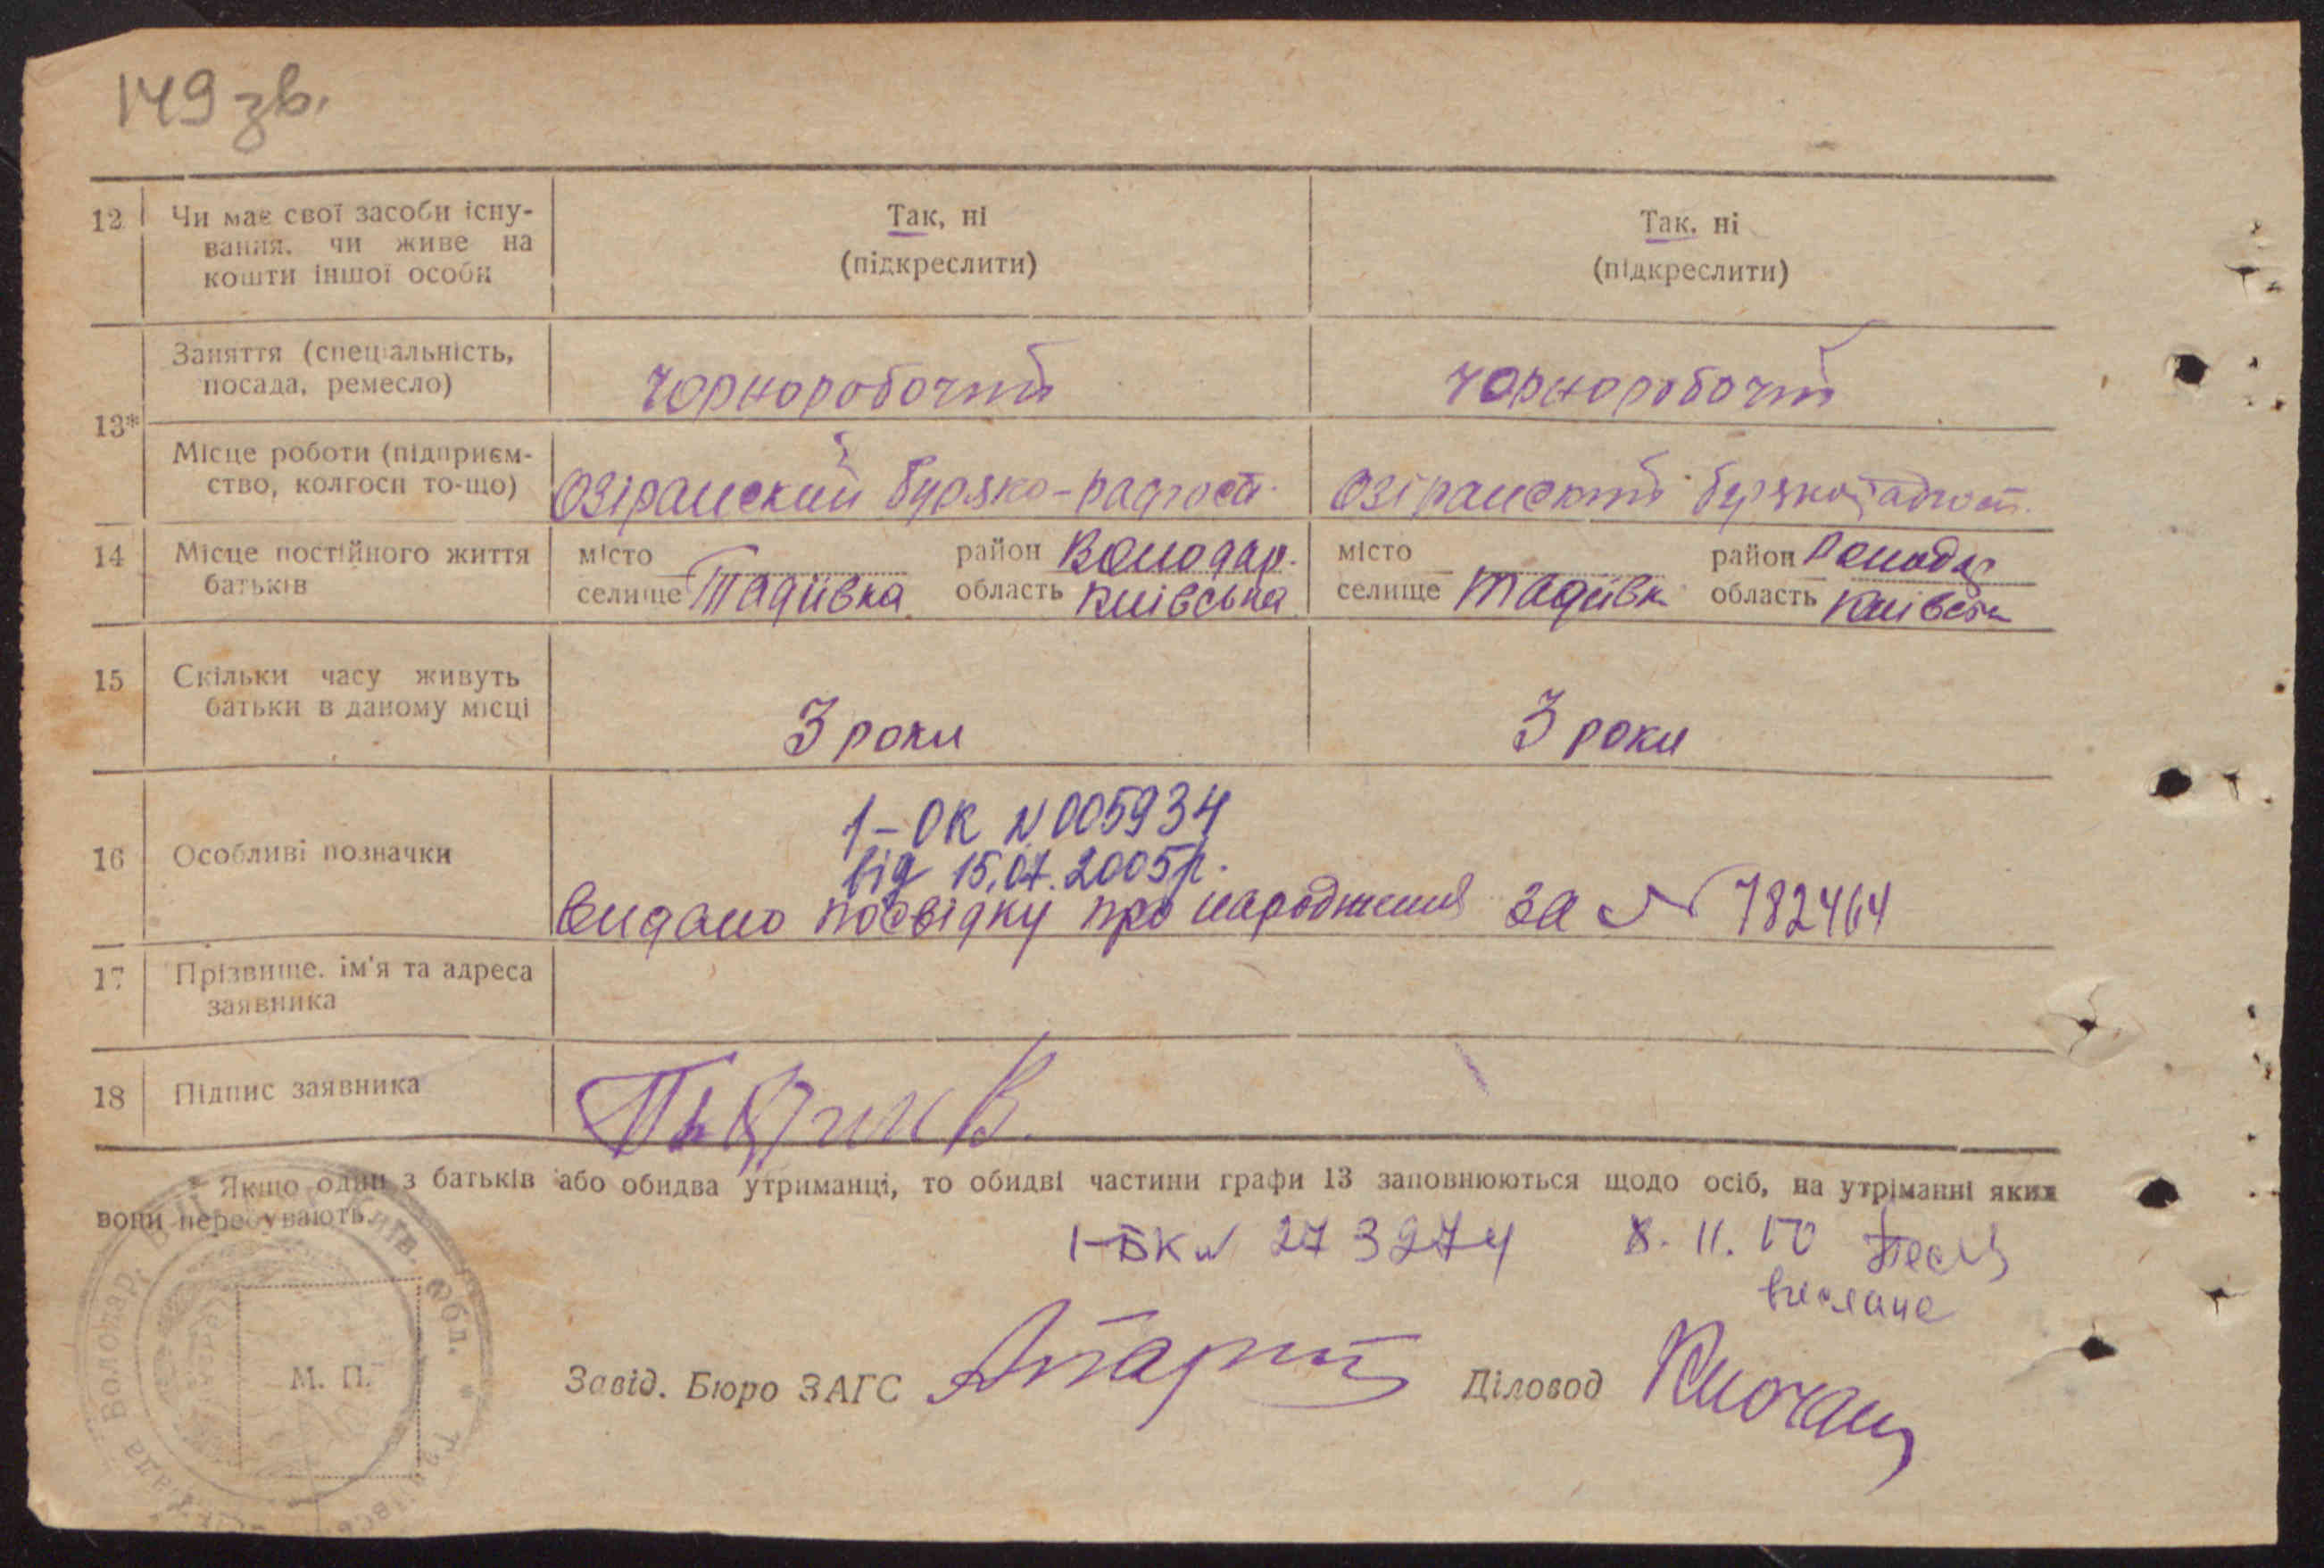 149 зв.
12 Чи має свої засоби існу-
вання, чи живе на
кошти іншої особи
Так, ні
(підкреслити)
Так, ні
(підкреслити)
13*
Заняття (спеціальність,
посада, ремесло)
чорноробочий
чорноробочий
Місце роботи (підприєм-
ство, колгосп то-що)
Озіранский буряко-радгосп
14 Місце постійного життя
батьків
місто
селище Тадіївка
район Володар.
область Київська
місто
селище Тадіївк
район Володар
область Київськ
15 Скільки часу живуть
батьки в даному місці
3 роки
3 роки
16 Особливі позначки
1-ОК N 005934
від 15.07.2005р.
Видано посвідку про народження за № 782464
17 Прізвище, ім'я та адреса
заявника
18 Підпис заявника
* Якщо один з батьків або обидва утриманці, то обидві частини графи 13 заповнюються щодо осіб, на утріманні яких
вони перебувають.
1-БК № 273274 8.11.
М. П.
Завід. Бюро ЗАГС
Діловод
Володар.
Київ. Обл. *